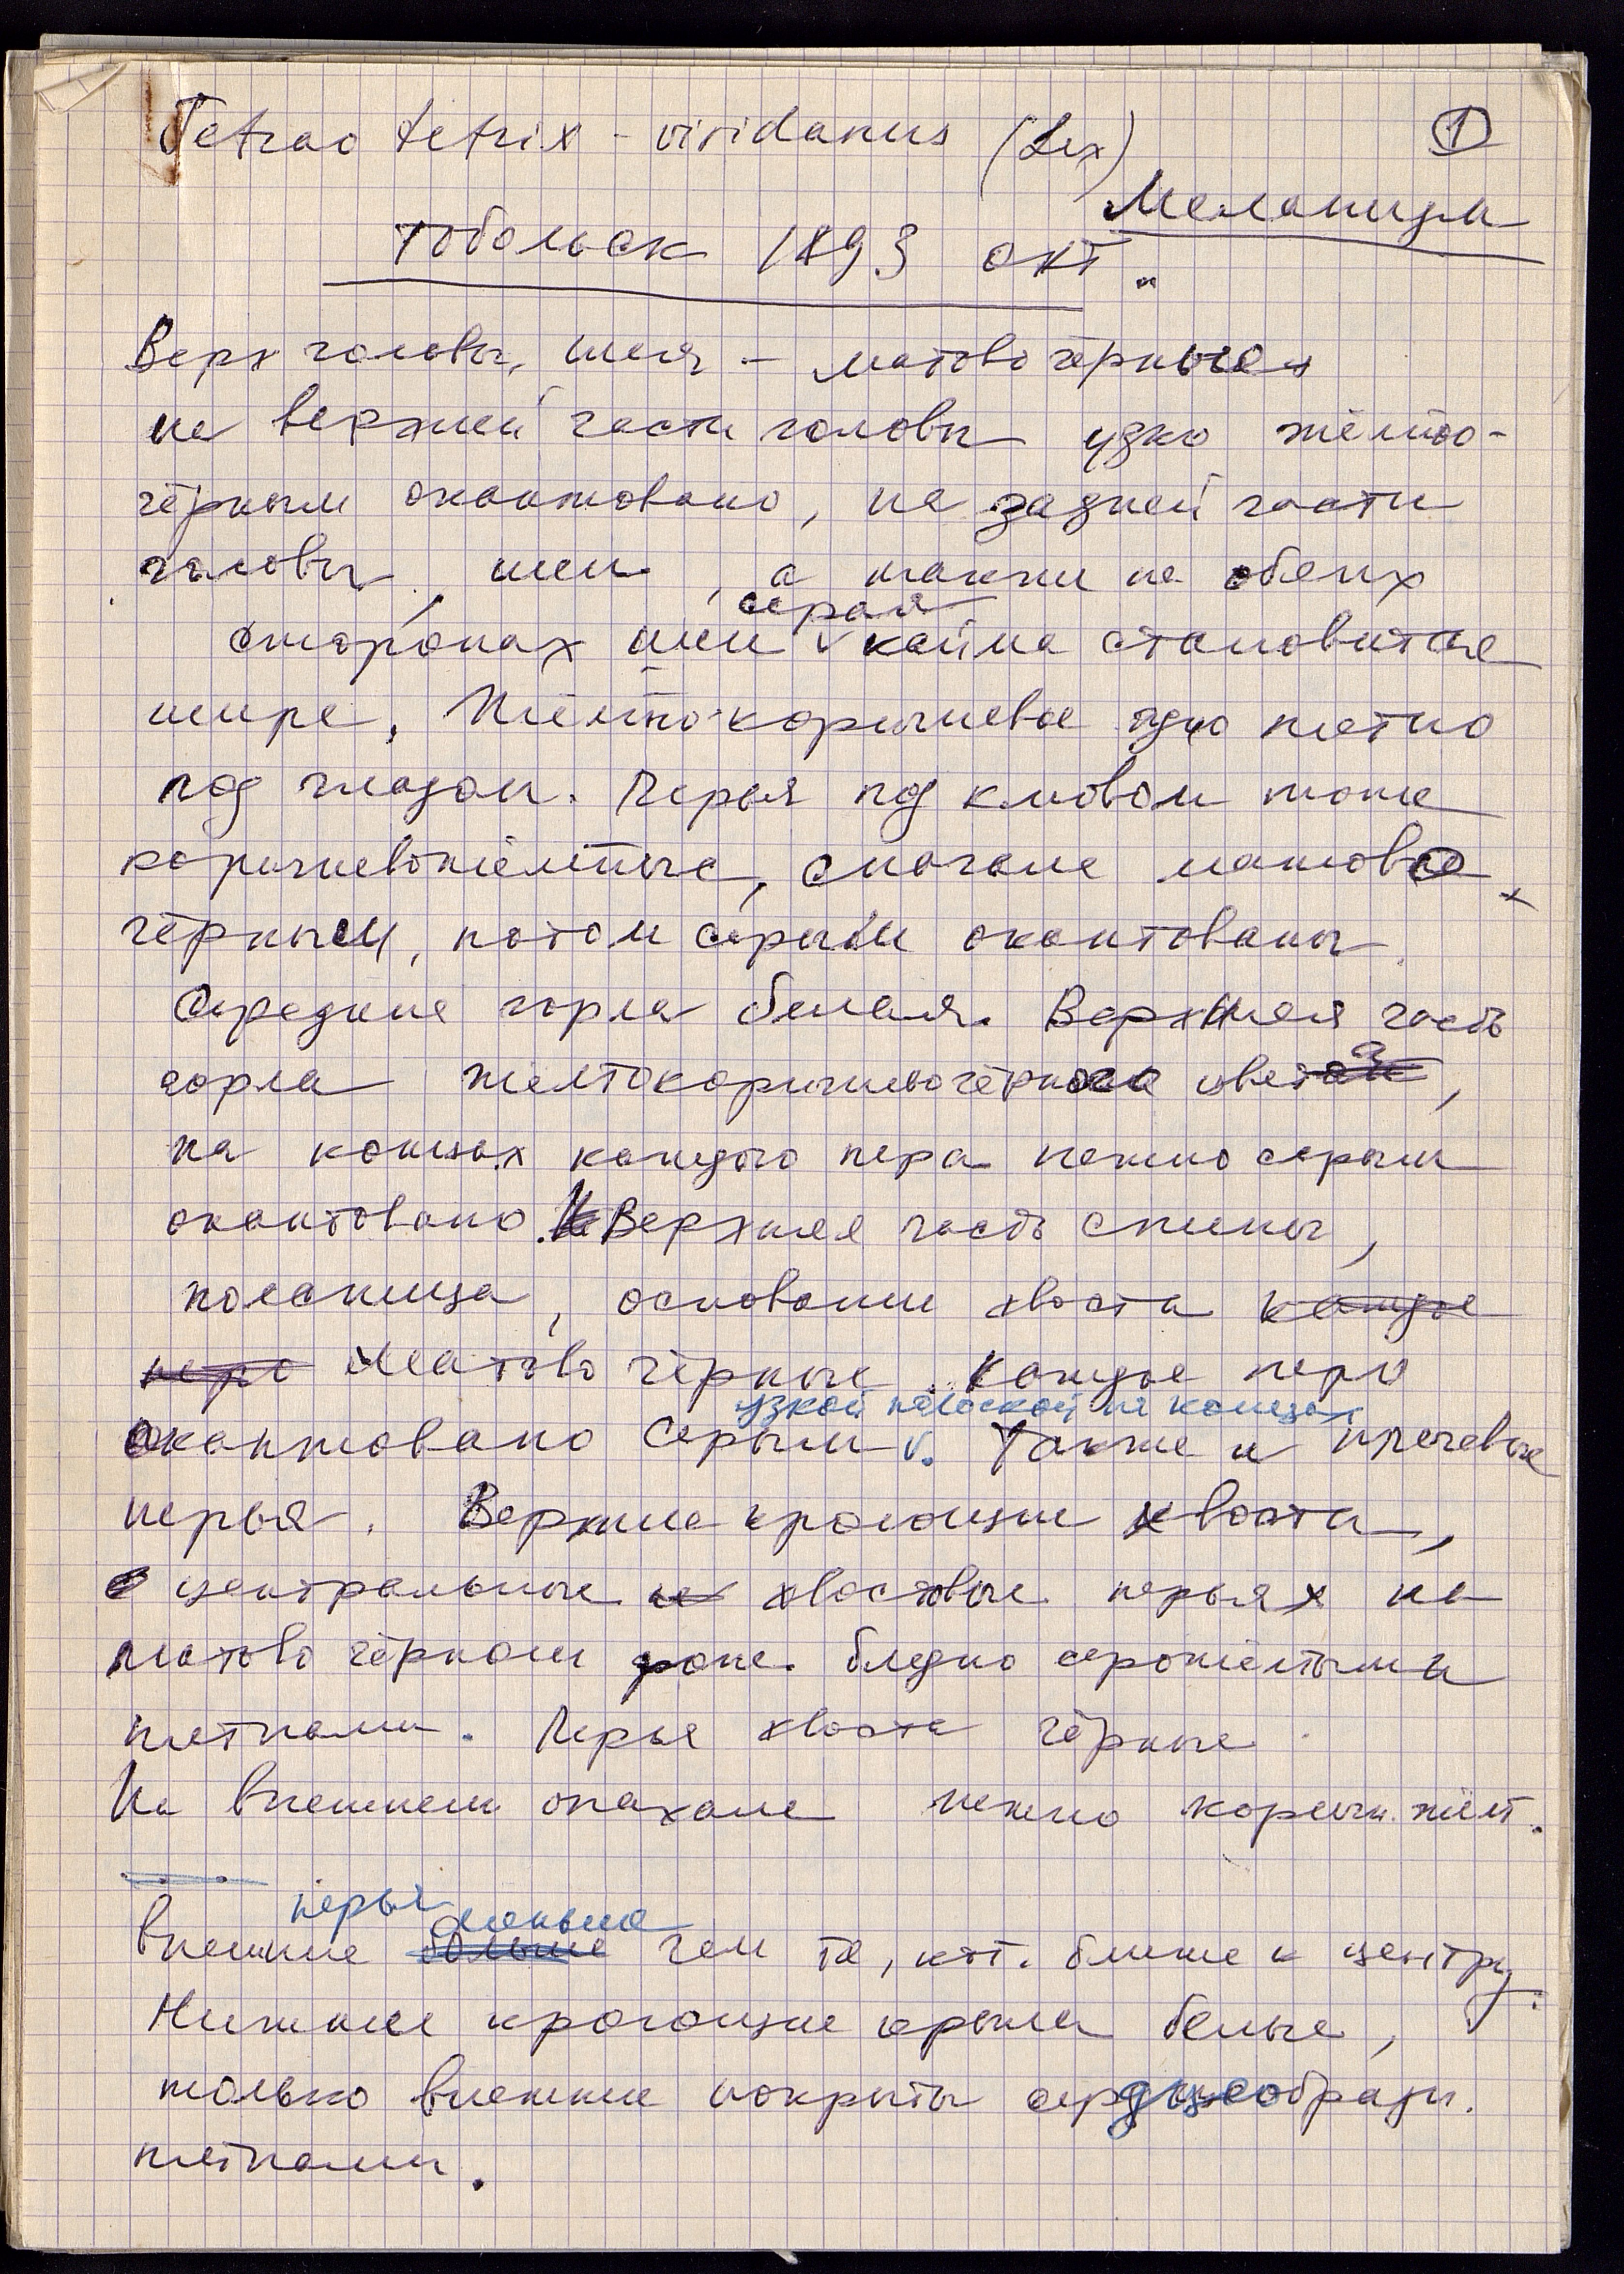 Tetrao tetrix - viridanus (Lux) 1
Меланизм
Тобольск 1893 окт.
Верх головы, шея - матово чёрные
на верхней части головы узко жёлто-
чёрным окантовано, на задней части
головы, шеи, а также на обеих
серая
сторонах шеи v кайма становится
шире, Жёлто-коричневое одно пятно
под глазом. Перья под клювом тоже
коричневожёлтые, сначала матово
чёрным, потом серым окантованы.
Середина горла белая. Верхняя часть
горла желтокоричневочёрного цвета,
на концах каждого пера нежно серым
окантовано. Верхняя часть спины,
поясница, основании хвоста каждое
перо матово чёрные. Каждое перо
узкой полоской на концах
окантовано серым v. Также и плечевые
перья. Верхние кроющие хвоста,
с центральные на хвостовые перьях на
матово чёрном фоне бледно серожёлтыми
пятнами. Перья хвоста чёрные.
На внешнем опахале нежно коричн. жёлт.
перья меньше
Внешние больше чем те, кот. ближе к центру.
Нижние кроющие крыла белые,
только внешние покрыты сердцеобразн.
пятнами.